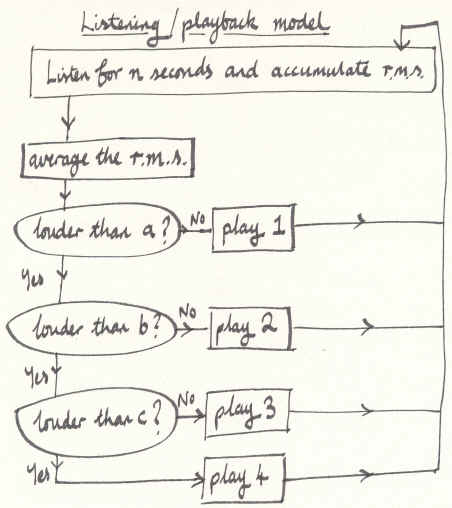 Listening/playback model
Listen for n seconds and accumulate r.m.s.
average the r.m.s.
louder than a?
No
play 1
Yes
louder than b?
No
play 2
Yes
louder than c?
No
play 3
Yes
play 4